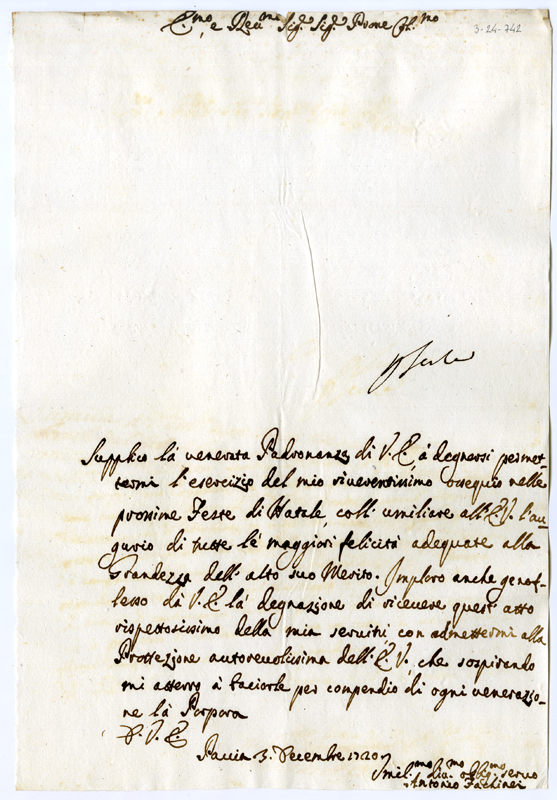 E.mo, e Rev.mo Sig.r Sig.r P̃rone Col.mo
3-24-742
Supplico la venerata Padronanza di V. E., à degnarsi permet-
termi l'esercizio del mio riverentissimo ossequio nelle
prossime Feste di Natale, coll' umiliare all' E.V. l'au-
gurio di tutte le maggiori felicità adequate alla
Grandezza dell' alto suo Merito. Imploro anche genuf-
lesso dà V. E. là degnazione di ricevere quest' atto
rispettosissimo della mia servitù con admettermi alla
Protezione autorevolissima dell' E. V., che sospirando
mi atterro à baciarle per compendio di ogni venerazio-
ne là Porpora
D. V. E.
Pavia 3. Decembre 1720
Umil.mo div.mo oblig.mo servo
Antonio Fachinei